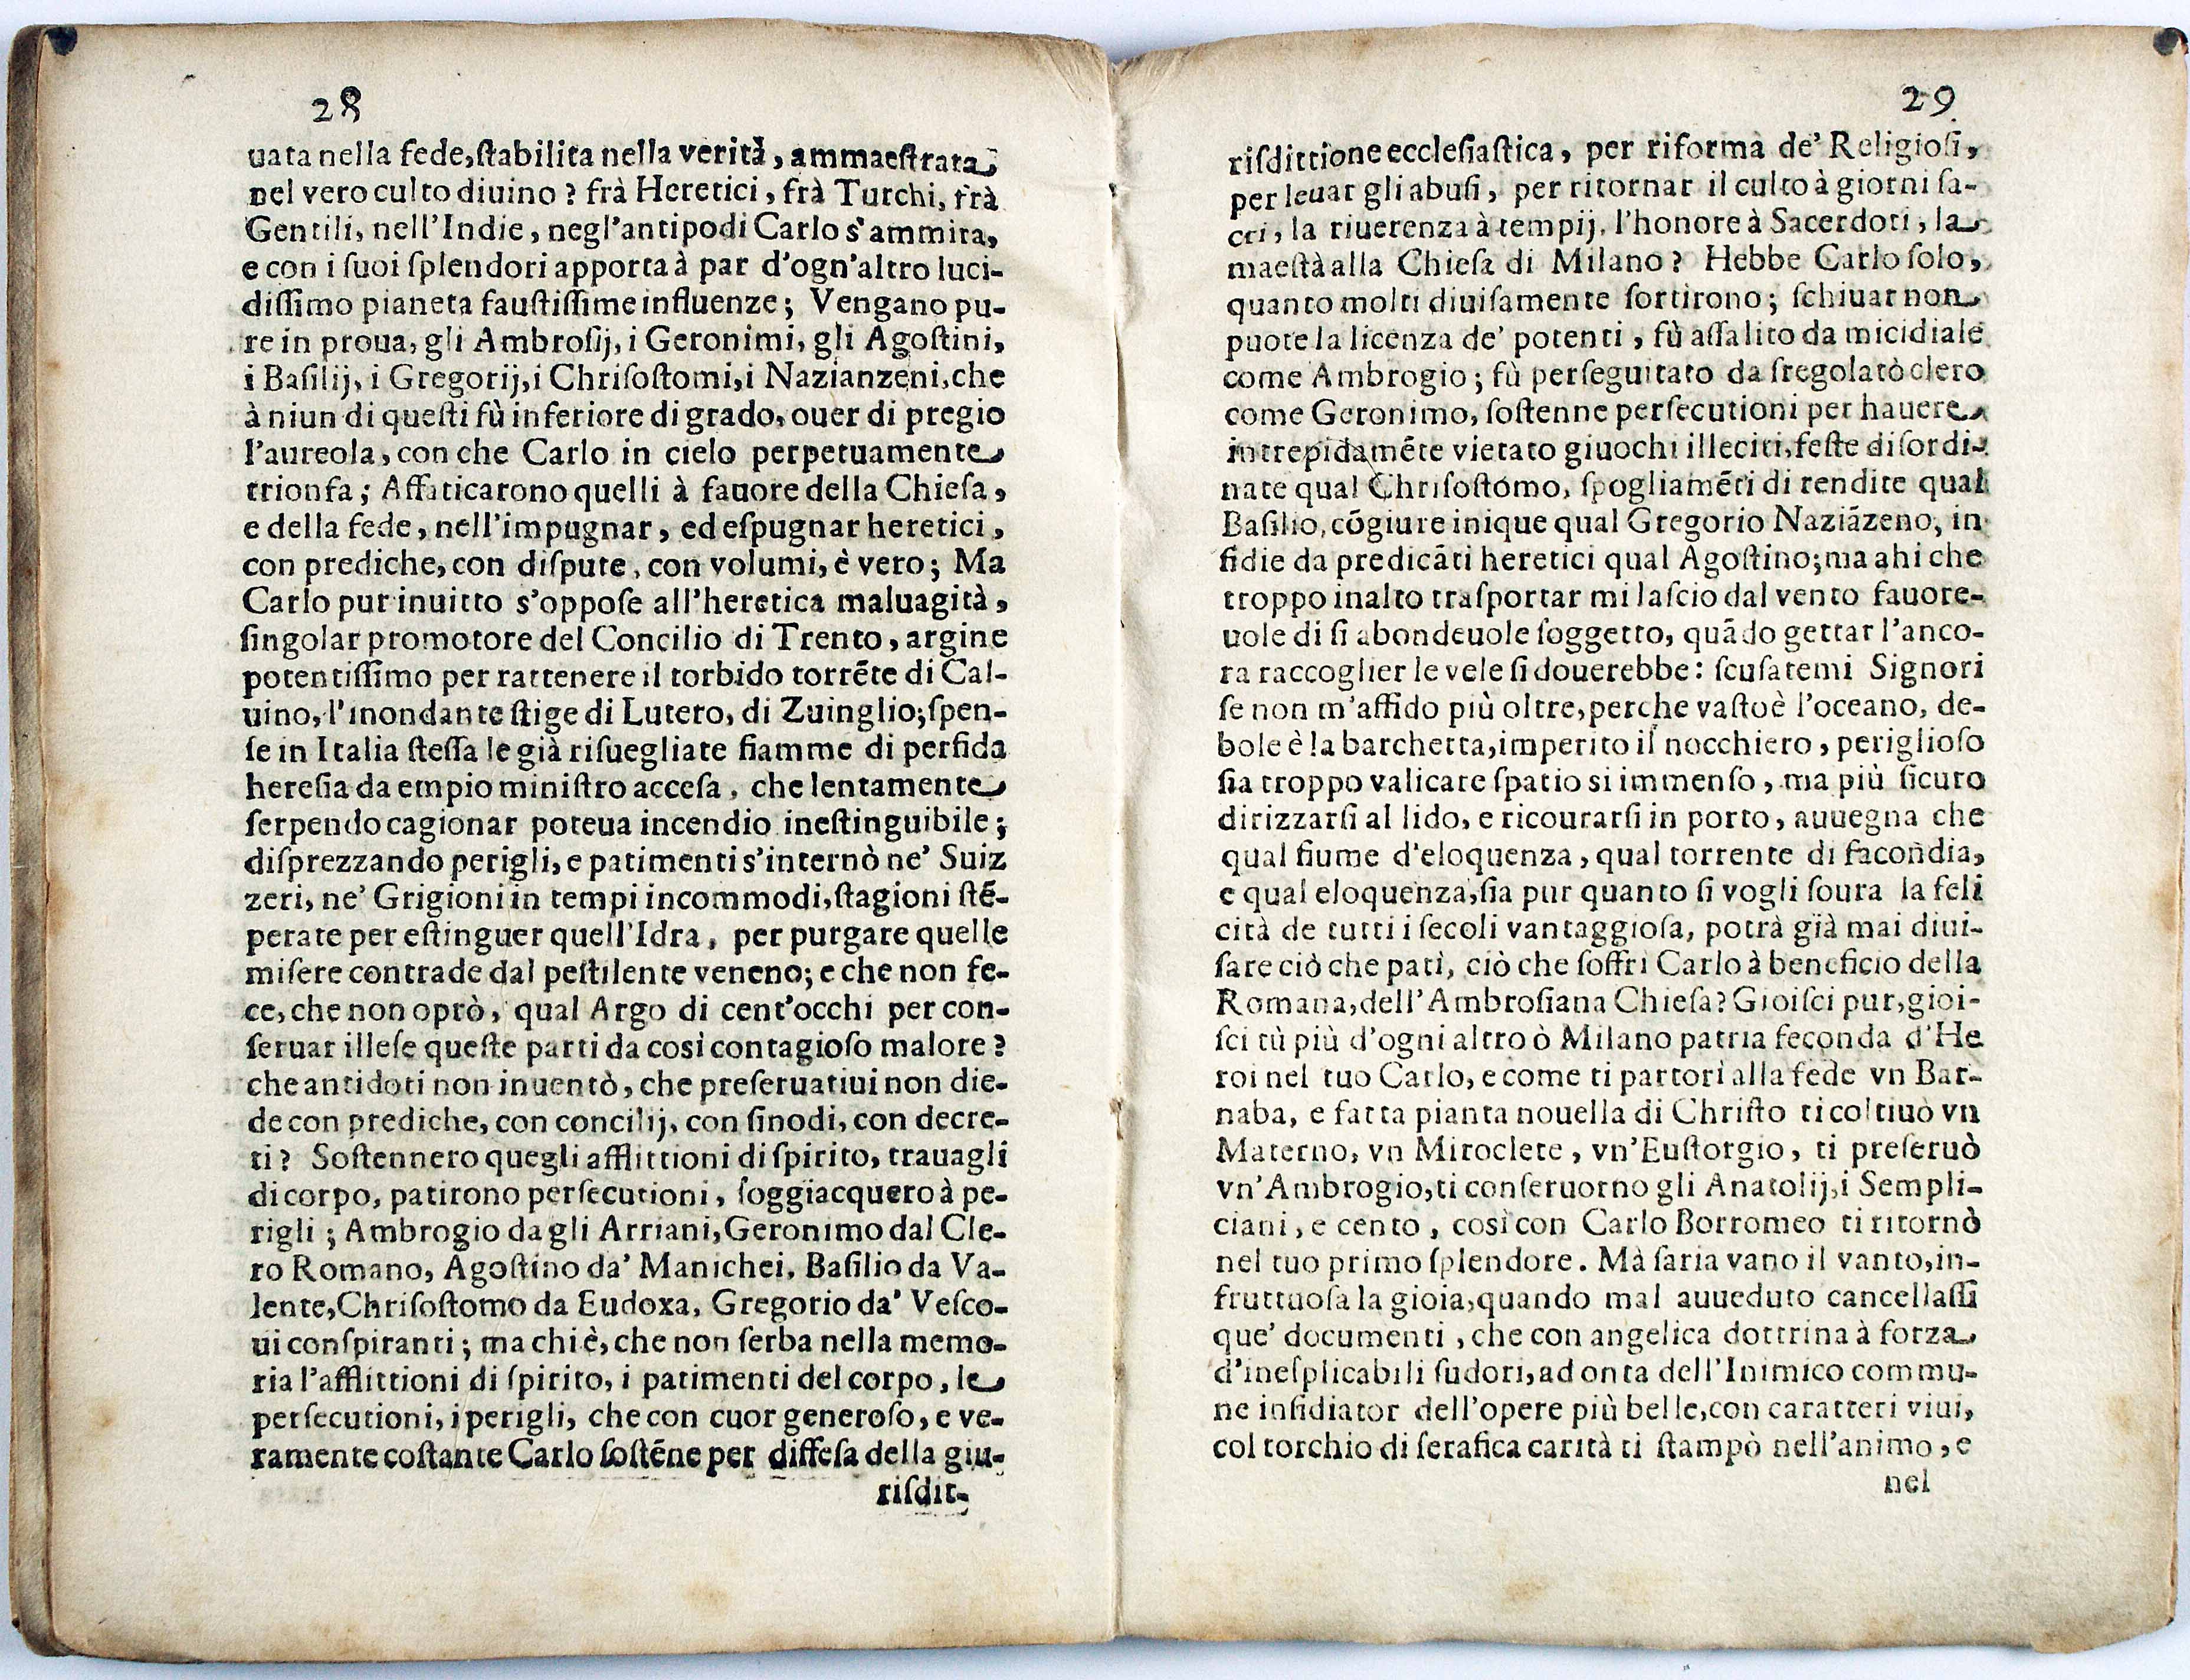 28
uata nella fede, ſtabilita nella verità, ammaeſtrata
nel vero culto diuino? frà Heretici, frà Turchi, frà
Gentili, nell'Indie, negl'antipodi Carlo s'ammira,
e con i ſuoi ſplendori apporta à par d'ogn'altro luci-
diſſimo pianeta fauſtiſſime influenze; Vengano pu-
re in proua, gli Ambroſij, i Geronimi, gli Agoſtini,
i Baſilij, i Gregorij, i Chriſoſtomi, i Nazianzeni, che
à niun di queſti fù inferiore di grado, ouer di pregio
l'aureola, con che Carlo in cielo perpetuamente
trionfa; Affaticarono quelli à fauore della Chieſa,
e della fede, nell'impugnar, ed eſpugnar heretici,
con prediche, con diſpute, con volumi, è vero; Ma
Carlo pur inuitto s'oppoſe all'heretica maluagità,
ſingolar promotore del Concilio di Trento, argine
potentiſſimo per rattenere il torbido torrẽte di Cal-
uino, l'inondante ſtige di Lutero, di Zuinglio; ſpen-
ſe in Italia ſteſſa le già riſuegliate fiamme di perfida
hereſia da empio miniſtro acceſa, che lentamente
ſerpendo cagionar poteua incendio ineſtinguibile;
diſprezzando perigli, e patimenti s'internò ne' Suiz
zeri, ne' Grigioni in tempi incommodi, ſtagioni ſtẽ-
perate per eſtinguer quell'Idra, per purgare quelle
miſere contrade dal peſtilente veneno; e che non fe-
ce, che non oprò, qual Argo di cent'occhi per con-
ſeruar illeſe queſte parti da così contagioſo malore?
che antidoti non inuentò, che preſeruatiui non die-
de con prediche, con concilij, con ſinodi, con decre-
ti? Soſtennero quegli afflittioni di ſpirito, trauagli
di corpo, patirono perſecutioni, ſoggiacquero à pe-
rigli; Ambrogio dagli Arriani, Geronimo dal Cle-
ro Romano, Agoſtino da' Manichei, Baſilio da Va-
lente, Chriſoſtomo da Eudoxa, Gregorio da' Veſco-
ui conſpiranti; ma chi è, che non ſerba nella memo-
ria l'afflittioni di ſpirito, i patimenti del corpo, le
perſecutioni, i perigli, che con cuor generoſo, e ve-
ramente coſtante Carlo ſoſtẽne per diffeſa della giu-
riſdit-
29
riſdittione eccleſiaſtica, per riforma de' Religioſi,
per leuar gli abuſi, per ritornar il culto à giorni ſa-
cri, la riuerenza à tempij, l'honore à Sacerdoti, la
maeſtà alla Chieſa di Milano? Hebbe Carlo ſolo,
quanto molti diuiſamente ſortirono; ſchiuar non
puote la licenza de' potenti, fù aſſalito da micidiale
come Ambrogio; fù perſeguitato da ſregolatò clero
come Geronimo, ſoſtenne perſecutioni per hauere
intrepidamẽte vietato giuochi illeciti, feſte diſordi-
nate qual Chriſoſtomo, ſpogliamẽti di rendite qual
Baſilio, cõgiure inique qual Gregorio Naziãzeno, in
ſidie da predicãti heretici qual Agoſtino; ma ahi che
troppo inalto traſportar mi laſcio dal vento fauore-
uole di ſi abondeuole ſoggetto, quãdo gettar l'anco-
ra raccoglier le vele ſi douerebbe: ſcuſatemi Signori
ſe non m'affido più oltre, perche vaſto è l'oceano, de-
bole è la barchetta, imperito il nocchiero, periglioſo
ſia troppo valicare ſpatio si immenſo, ma più ſicuro
dirizzarſi al lido, e ricourarſi in porto, auuegna che
qual fiume d'eloquenza, qual torrente di facondia,
e qual eloquenza, ſia pur quanto ſi vogli ſoura la feli
cità de tutti i ſecoli vantaggioſa, potrà già mai diui-
ſare ciò che patì, ciò che ſoffrì Carlo à beneficio della
Romana, dell'Ambroſiana Chieſa? Gioiſci pur, gioi-
ſci tù più d'ogni altro ò Milano patria feconda d'He
roi nel tuo Carlo, e come ti partorì alla fede vn Bar-
naba, e fatta pianta nouella di Chriſto ti coltiuò vn
Materno, vn Miroclete, vn'Euſtorgio, ti preſeruò
vn'Ambrogio, ti conſeruorno gli Anatolij, i Sempli-
ciani, e cento, così con Carlo Borromeo ti ritornò
nel tuo primo ſplendore. Mà ſaria vano il vanto, in-
fruttuoſa la gioia, quando mal auueduto cancellaſſi
que' documenti, che con angelica dottrina à forza
d'ineſplicabili ſudori, ad onta dell'Inimico commu-
ne inſidiator dell'opere più belle, con caratteri viui,
col torchio di ſerafica carità ti ſtampò nell'animo, e
nel